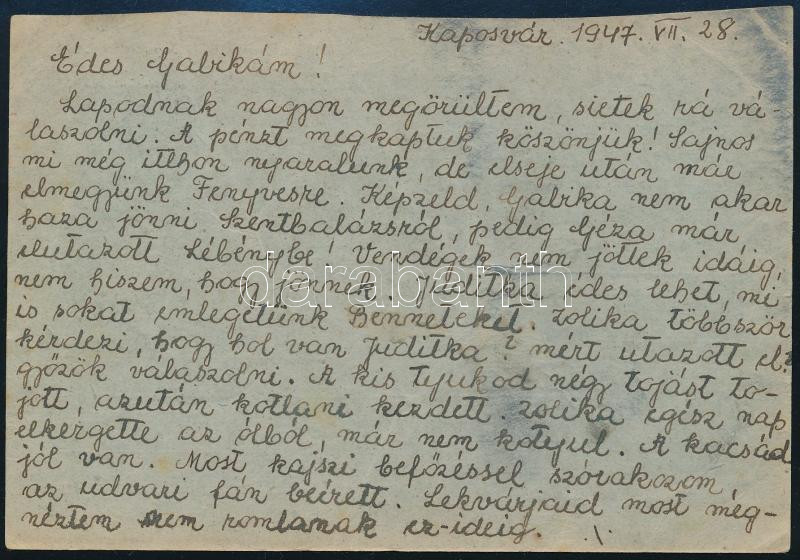 Kaposvár. 1947. VII. 28.
Édes Gabikám!
Lapodnak nagyon megörültem, sietek rá vá-
laszolni. A pénzt megkaptuk köszönjük! Sajnos
mi még itthon nyaralunk, de elseje után már
elmegyünk Fenyvesre. Képzeld, Gabika nem akar
haza jönni Szentbalázsról, pedig Géza már
elutazott Lébénybe! Vendégek nem jöttek idáig,
nem hiszem, hogy jönnek. Juditka édes lehet, mi
is sokat emlegetünk Benneteket. Zolika többször
kérdezi, hogy hol van Juditka? mért utazott el?
győzök válaszolni. A kis tyukod négy tojást to-
jott, azután kotlani kezdett. Zolika egész nap
elkergette az ólból, már nem kotyul. A kacsád
jól van. Most kajszi befőzéssel szórakozom,
az udvari fán beérett. Lekvárjaid most még-
néztem nem romlanak ez-ideig.
darabanth.com